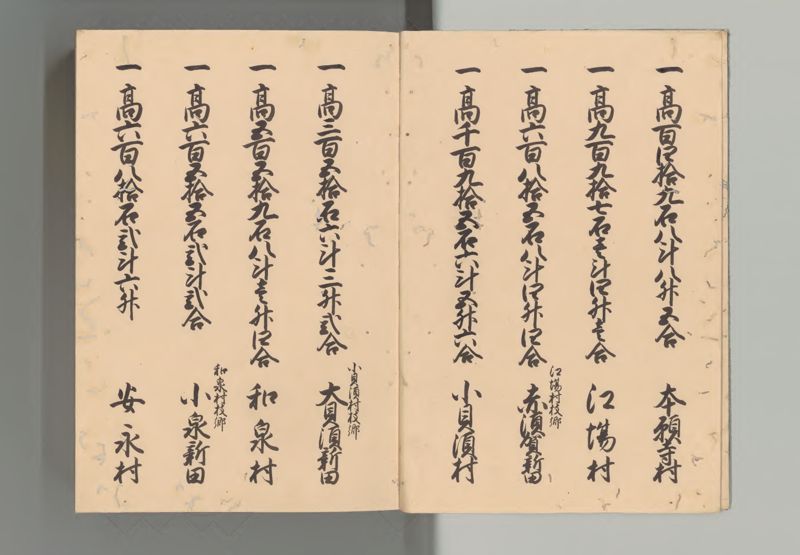 一高百四拾九石八斗八升五合 本願寺村
一高九百九拾七石壱斗四升壱合 江場村
江場村枝郷
一高六百八拾五石八斗四升四合 赤須賀新田
一高千百九拾五石六斗五升六合 小貝須村
小貝須村枝郷
一高三百五拾石六斗三升弐合 大貝須新田
一高五百五拾九石八斗壱升四合 和泉村
和泉村枝郷
一高六百五拾五石弐斗弐合 小泉新田
一高六百八拾石弐斗六升 安永村